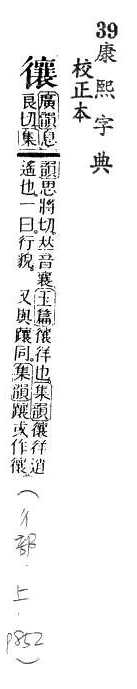 39 康熙字典
校正本
忀
廣韻息
良切集
韻思將切𠀤音襄玉篇忀徉也集韻忀徉逍
遙也一曰行貌。又與躟同。集韻躟或作忀。
(彳部.上.p852)